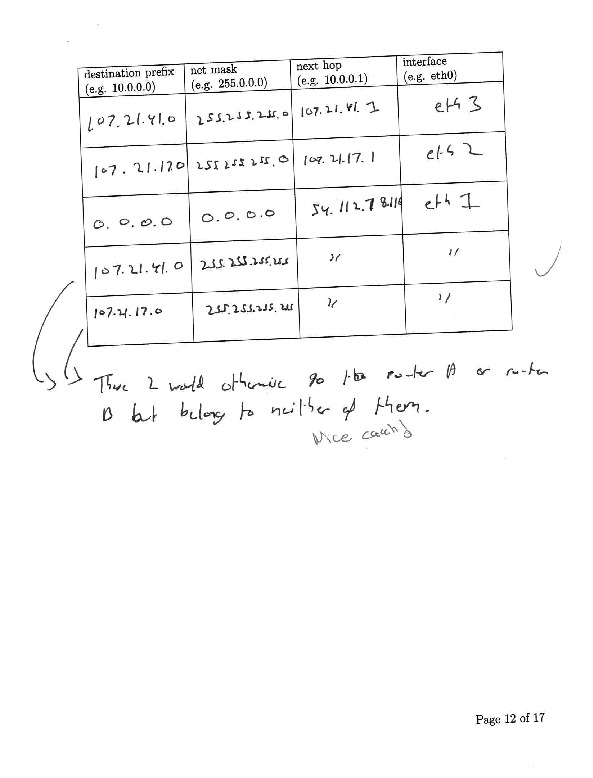 destination prefix (e.g. 10.0.0.0) net mask (e.g. 255.0.0.0) next hop (e.g. 10.0.0.1) interface (e.g. eth0)
107.21.41.0 255.255.255.0 107.21.41.1 eth 3
107.21.17.0 255 255 255.0 107.21.17.1 eth 2
0.0.0.0 0.0.0.0 54.112.78.114 eth 1
107.21.41.0 255.255.255.255 " "
107.21.17.0 255.255.255.255 " "
These 2 would otherwise go to router A or router
B but belong to neither of them.
Nice catch!
Page 12 of 17